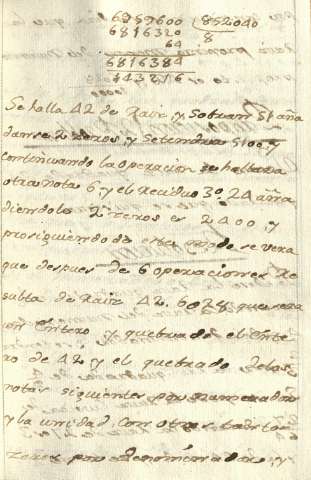 6959600 | 852040
6816320 8
64
6816384
143216
Se halla 42 de Raiz y Sobran 51 aña
danse 2 zeros, y Setendra 5100 y
continuando la operacion se hallara
otra nota 6, y el Reciduo 3º. 24 aña
diendole 2 zeros es 2400, y
prosiguiendo de este modo se vera
que despues de 6 operaciones Re
sulta de Raiz 42, 6028 que sera
un Entero, y quebrado el Ente
ro de 42 y el quebrado delas
notas siguientes por numerador
y la unidad con otros tantos
zeros por Denominador, y